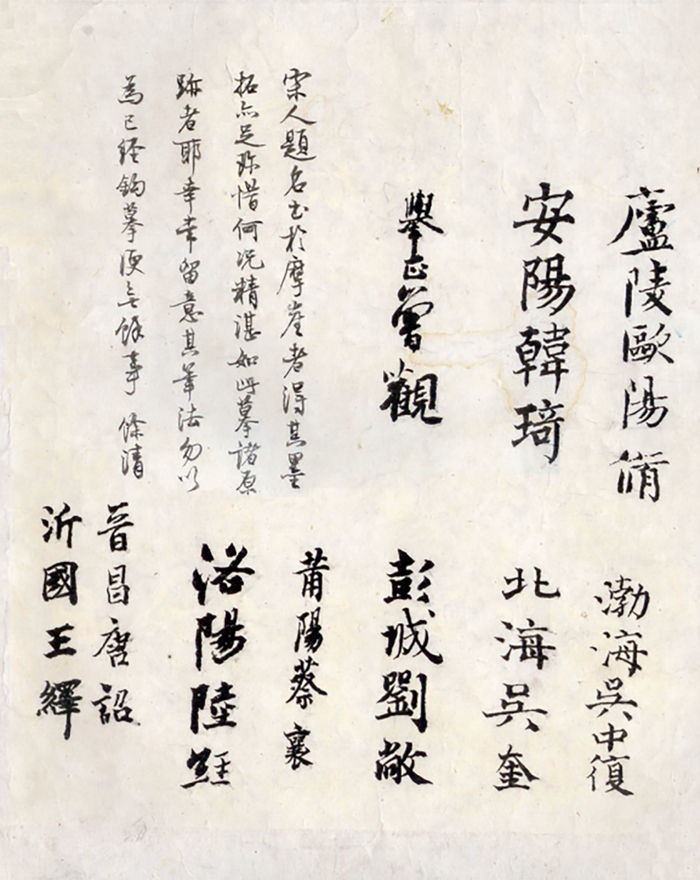 廬陵歐陽脩
安陽韓琦
舉正曾觀
宋人題名書於摩崖者得其墨
拓亦足珍惜何況精湛如此摹諸原
跡者耶幸常留意其筆法勿以
為已經鈎摹便無餘事 條清
渤海吳中復
北海吳奎
彭城劉敞
莆陽蔡襄
洛陽陸經
晉昌唐詔
沂國王繹